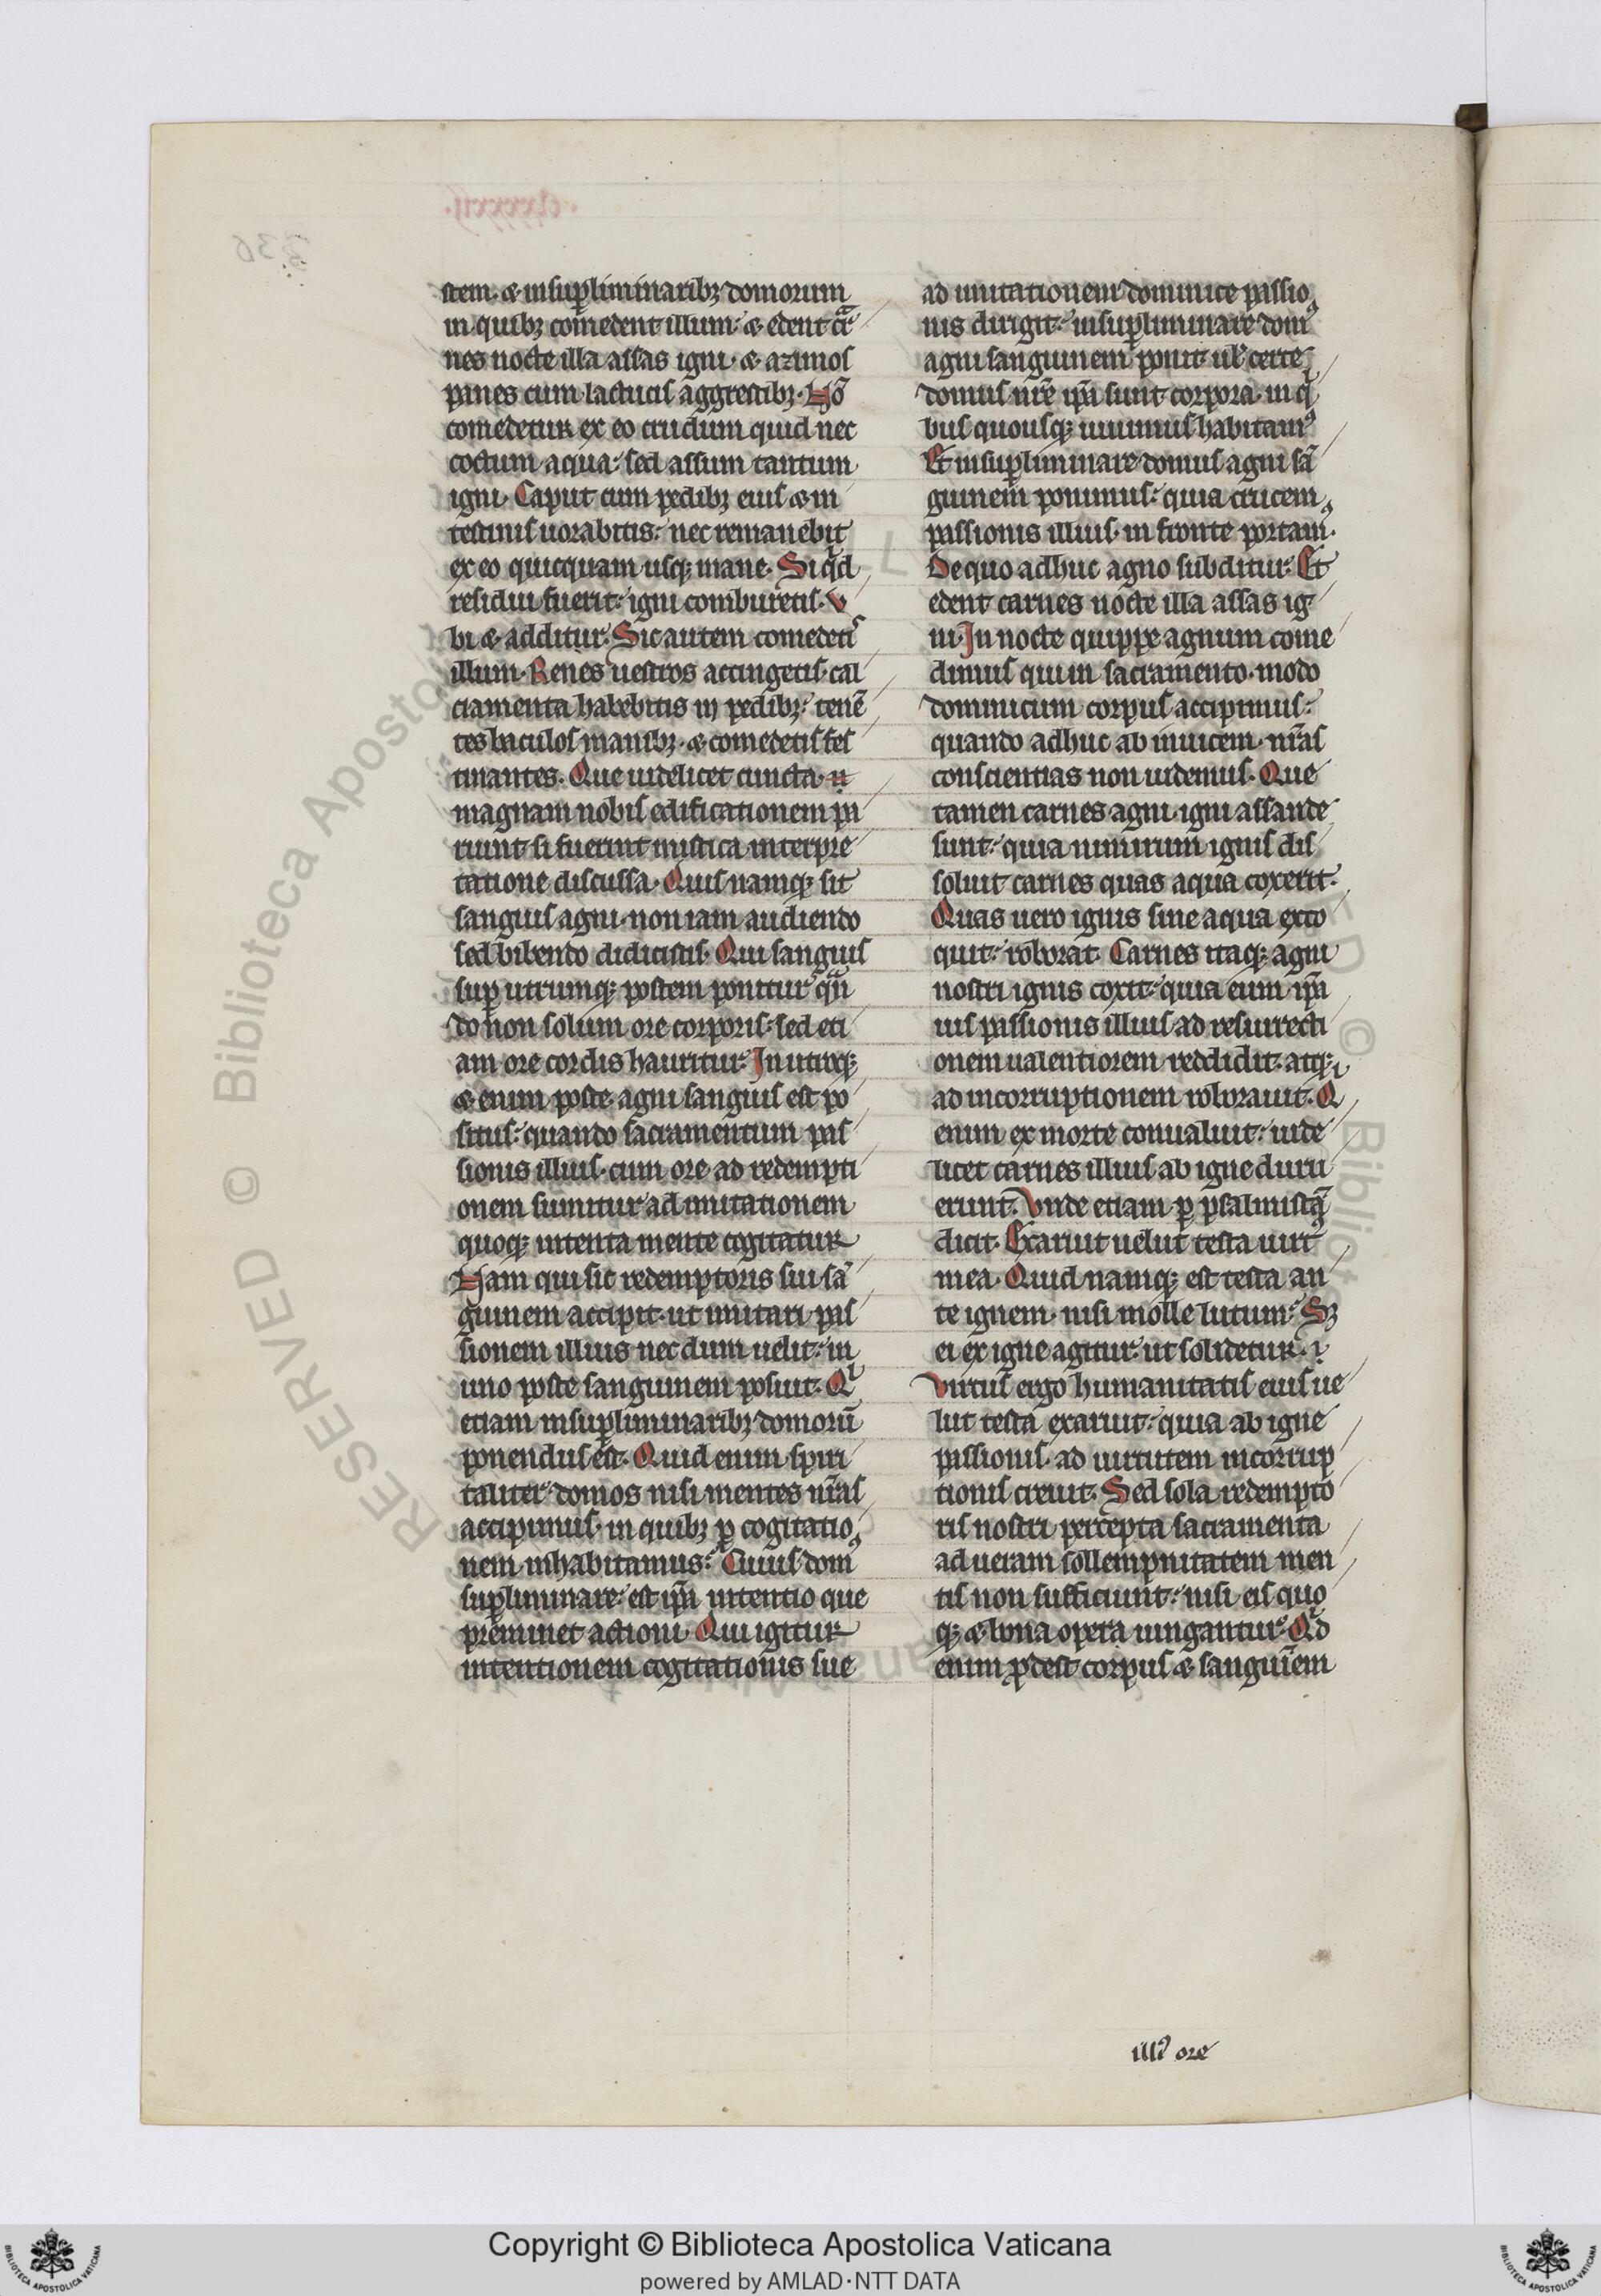 stem· & insup̱liminarib; domorum
in quib; com̄edent illum· & edent car̄
nes nocte illa assas igni· & azimos
panes cum lactucis aggrestib;· Nō
comedetur ex eo crudum quid nec
coctum aqua· sed assum tantum
igni· Caput cum pedib; eius & in
testinis uorabitis· nec remanebit
ex eo quicquam usq; mane· Si qͥd
residui fuerit· igni comburetis· V
bi & additur· Sic autem comedetis
illum· Renes uestros accingetis· cal
ciamenta habebitis in pedib;· tenē
tes baculos manib;· & comedetis fes
tinantes· Que uidelicet cuncta·
magnam nobis edificationem pa
riunt si fuerint mistica interpre
tatione discussa· Quis namq; sit
sanguis agni· non iam audiendo
sed bibendo didicistis· Qui sanguis
sup̱ utrumq; postem ponitur qn̄
do non solum ore corporis· sed eti
am ore cordis hauritur· In utroq;
& enim poste agni sanguis est po
situs· quando sacramentum pas
sionis illius· cum ore ad redempti
onem sumitur ad imitationem
quoq; intenta mente cogitatur
Nam qui sic redemptoris sui sā
guinem accipit· ut imitari pas
sionem illius necdum uelit· in
uno poste sanguinem posuit· Qͥ
etiam insup̱liminarib; domorū
ponendus est· Quid enim spiri
taliter domos nisi mentes nr̄as
accipimus· in quib; p̱ cogitatio
nem inhabitamus· Cuius domꝰ
sup̱liminare· est ip̄a intentio que
preminet actioni· Qui igitur
intentionem cogitationis sue
ad imitationem dominice passio
nis dirigit· insup̱liminare domꝰ
agni sanguinem ponit ul̓ certe
domus nr̄e ip̄a sunt corpora· in qͥ
bus quousq; uiuimus habitamꝰ
Et insup̱liminare domus agni sā
guinem ponimus· quia crucem
passionis illius· in fronte portamꝰ·
De quo adhuc agno subditur· Et
edent carnes nocte illa assas ig
ni· In nocte quippe agnum come
dimus qui in sacramento· modo
dominicum corpus accipimus·
quando adhuc ab inuicem· nr̄as
conscientias non uidemus· Que
tamen carnes agni· igni assande
sunt· quia nimirum ignis dis
soluit carnes quas aqua coxerit·
Quas uero ignis sine aqua exco
quit· roborat· Carnes itaq; agni
nostri ignis coxit· quia eum ip̄a
uis passionis illius ad resurrecti
onem ualentiorem reddidit· atq;
ad incorruptionem roborauit· Qͥ
enim ex morte conualuit· uide
licet carnes illius ab igne duru
erunt· Vnde etiam p̱ psalmistā
dicit· Exaruit uelut testa uirtꝰ
mea· Quid namq; est testa an
te ignem· nisi molle lutum· S;
ei ex igne agitur· ut solidetur·
Virtus ergo humanitatis eius ue
lut testa exaruit· quia ab igne
passionis· ad uirtutem incorrup
tionis creuit· Sed sola redempto
ris nostri percepta sacramenta
ad ueram sollempnitatem men
tis non sufficiunt· nisi eis quo
q; & bona opera iungantur· Qͥd
enim p̱dest corpus & sanguinem
illiꝰ ore
Copyright © Biblioteca Apostolica Vaticana
powered by AMLAD·NTT DATA